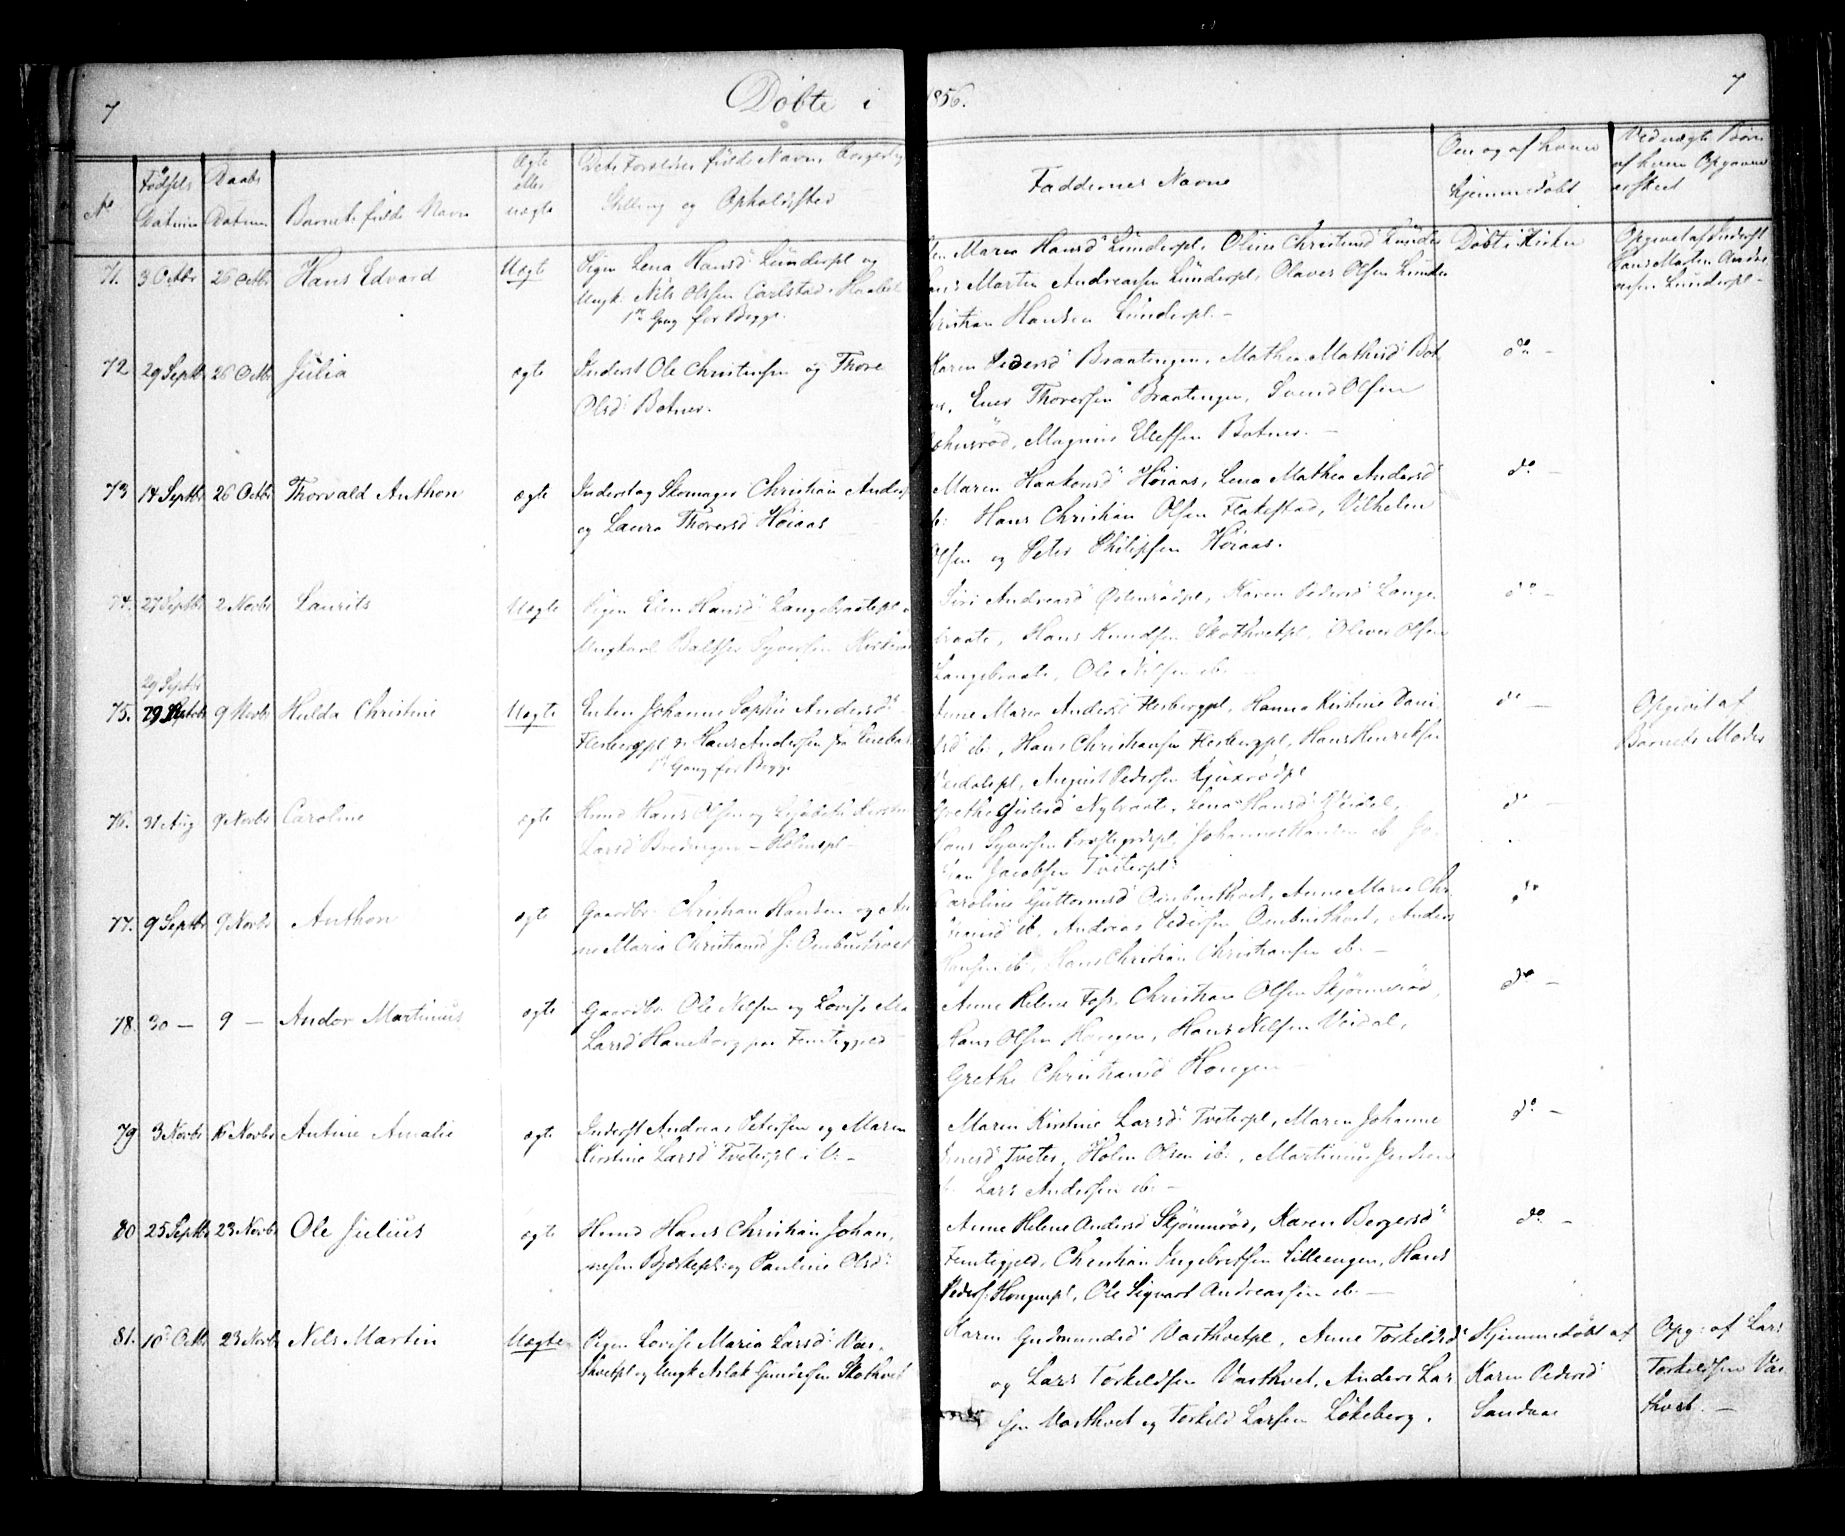 7
Døbte i 1856.
7
No
Fødsels Datum
Daabs Datum
Barnets fulde Navn
Ægte eller uægte
Dets Forældres fulde Navn, Borgerlig Stilling og Opholdssted
Faddernes Navne
Om og af hvem hjemmedøbt
Ved uægte Børn af hvem Opgaven er skeet
71. 3 Octbr 26 Octbr Hans Edvard Uægte Pigen Lena Hansd Lunderpl og
Ungk. Nils Olsen Carlstad i Haabøl
1ste Gang for Begge.
Maren Hansd Lunderpl, Oline Christensd Lunder
Martin Andreassen Lunderpl, Olaves Olsen Lunder
Christian Hansen Lunderpl. -
Døbt i Kirken
Opgivet af Inderst
Hans Martin Andre
assen Lunderpl -
72 29 Septbr 26 Octbr Julia ægte Inderst Ole Christensen og Thore
Olsd Botner.
Karen Pedersd Braatengen, Mathea Mathisd Bot
ner, Ener Thoresen Braatengen, Svend Olsen
Magnus Ellefsen Botner. -
do -
73 14 Septbr 26 Octbr Thorvald Anthon ægte Inderst og Skomager Christian Anders
og Laura Thoresd Høiaas
Maren Haakensd Høiaas, Lena Mathea Andersd
ib: Hans Christian Olsen Flakestad, Vilhelm
Olsen og Peter Philipsen Høiaas.
do -
74. 27 Septbr 2 Novbr Laurits Uægte Pigen Elen Hansd Langebraatepl
Ungkarl Baltser Syversen
Siri Andreasd Østenrødpl, Karen Pedersd Lange
braate, Hans Knudsen Skothvetpl, Oliver Olsen
Langebraate, Ole Nilsen ib.
do -
29 Septbr
75. 29 Septbr 9 Novbr Hulda Christine Uægte Enken Johanne Sophie Andersd
Flesbergpl og Hans Andersen fra Eneba
1ste Gang for Begge
Anne Maria Andersd Flesbergpl, Hanna Kirstine Dani
elsd ib., Hans Christiansen Flesbergpl, Hans Henriksen
August Pedersen
do -
Opgivet af
Barnets Moder
76. 31 Aug 9 Novbr Caroline ægte Hmnd Hans Olsen og Lisabeth Kirstin
Larsd Bredengen - Holmspl -
Grethe Nybraate, Lena Hansd Veidal,
Hans Syversen Præstegrdspl, Johannes Hansen ib. Jo
han Jacobsen Tveterpl
do -
77. 9 Septbr 9 Novbr Anthon ægte Gaardbr. Christian Hansen og An
ne Maria Christiansd Ombusthvet
Caroline Guttormsd Ombusthvet, Anne Maria Chr
ib, Andreas Pedersen Ombusthvet, Anders
Hansen ib, Hans Christian Christiansen ib. -
do
78. 30 - 9 - Andor Martinus ægte Gaardbr Ole Nilsen og Lovise Ma
Larsd Haneborg paa Femtegjeld
Anne Helene Foss, Christian Olsen Skjønnerød,
Hans Olsen Hansen, Hans Nilsen Veidal,
Grethe Christiansd Hongen -
do -
79 3 Novbr 16 Novbr Antine Amalie ægte Inderst Andreas Petersen og Maren
Kirstine Larsd Tveterpl i V. -
Maren Kirstine Larsd Tveterpl, Maren Johanne
Jensd Tveter, Holm Olsen ib., Martinus Jensen
ib. Lars Andersen ib. -
do -
80 25 Septbr 23 Novbr Ole Julius ægte Hmnd Hans Christian Johan,
nesen Bjerkepl: og Pauline Olsd
Anne Helene Andersd Skjønnerød, Karen Borgersd
Femtegjeld, Christian Ingebretsen Lilleengen, Hans
Peders: Hongenpl, Ole Sigvart Andreassen ib. -
do -
81. 10 Octbr 23 Novbr Nils Martin Uægte Pigen Lovise Maria Larsd Vas-
thvetpl og Ungk Aslak Gundersen Skothvet
Karen Gudmundsd Vasthvetpl, Anne Torkildsd
og Lars Torkildsen Vasthvet, Anders Lar
sen Vasthvet og Torkild Larsen Løkeberg.
Hjemmedøbt af
Karen Pedersd
Sandaas
Opg: af Lars
Torkildsen Vas
thvet. -